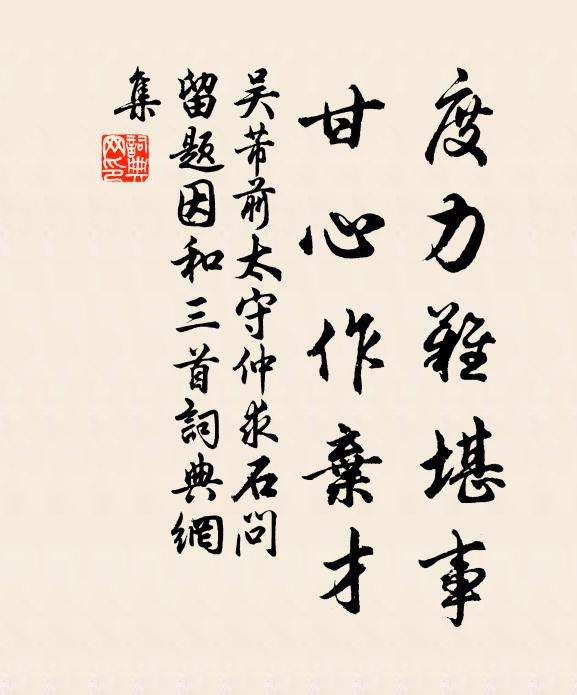 度力難堪事
甘心作棄才
吴芾前太守仲求石問
留题因和三首詞典網
集
詞典
网印